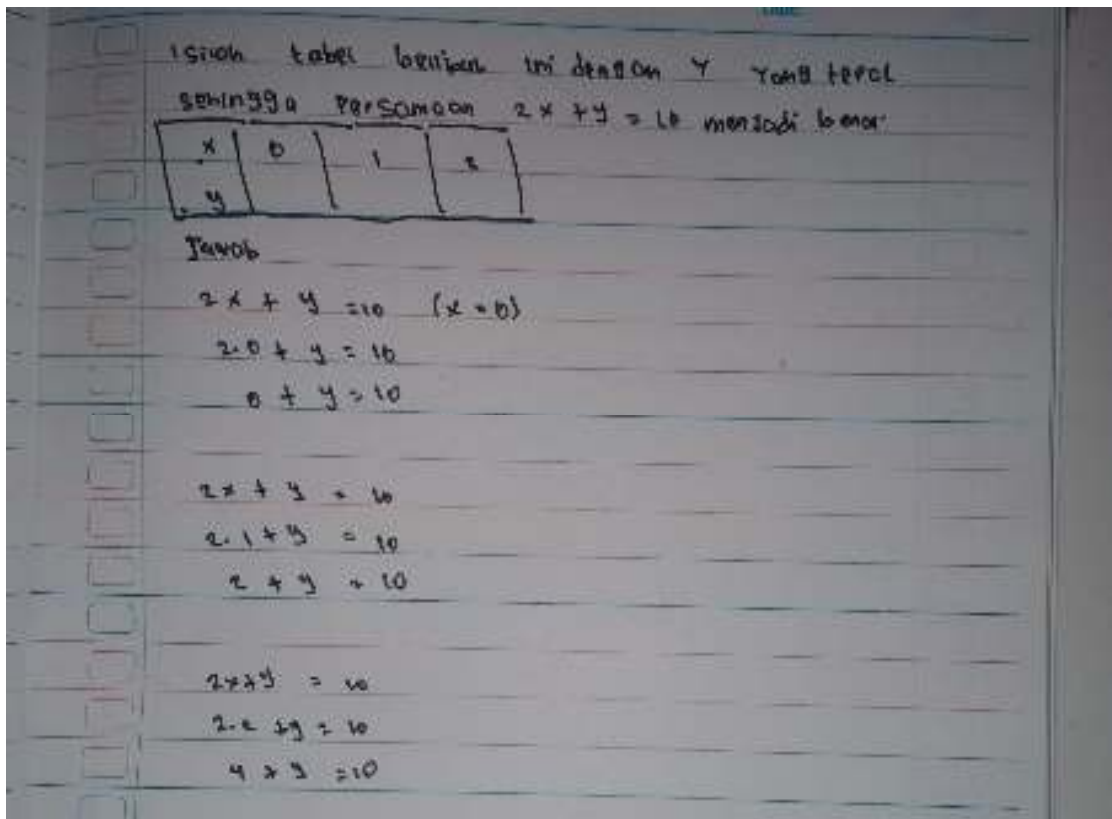 isilah tabel berikut ini dengan y yang tepat
sehingga persamaan 2x + y = 10 menjadi benar
x 0 1 2
y
Jawab
2x + y = 10 (x = 0)
2.0 + y = 10
0 + y = 10
2x + y = 10
2.1 + y = 10
2 + y = 10
2x + y = 10
2.2 + y = 10
4 + y = 10